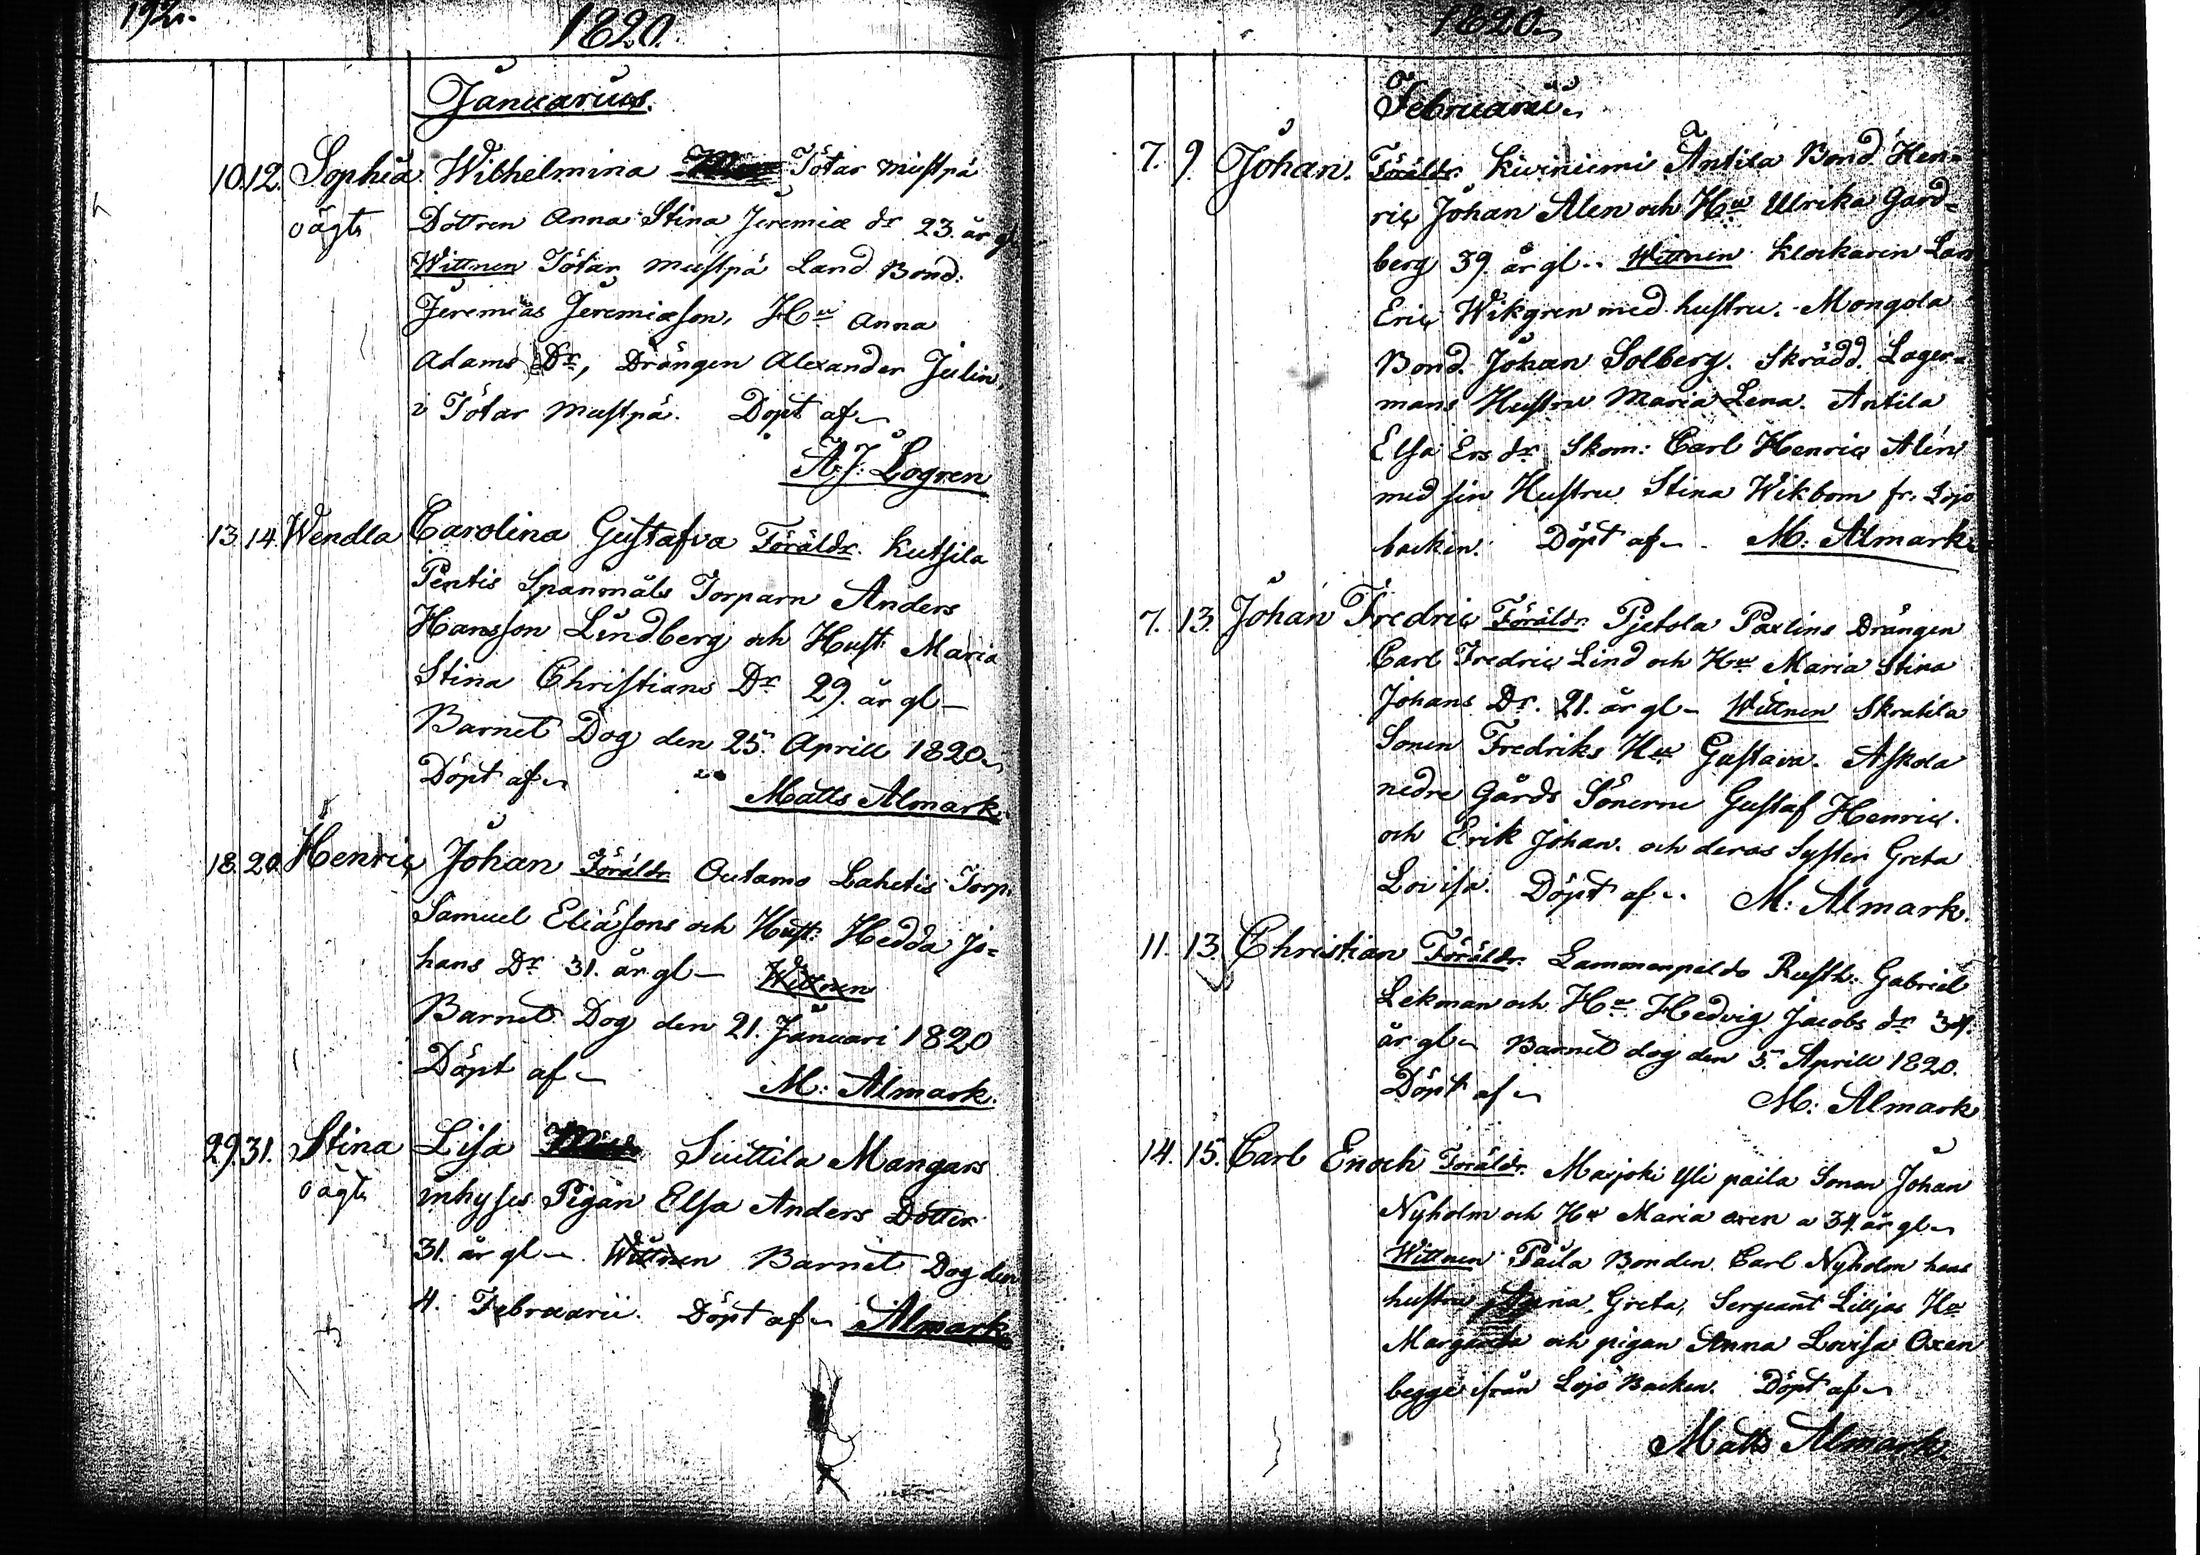 192.
1820.
Januarius.
10. 12. Sophia Wilhelmina Tötar mustpä
oägta Dottren Anna Stina Jeremiæ dr 23. år gl
Wittnen Tötar mustpä Land Bond:
Jeremias Jeremiæson, Hu Anna
Adams Dr, Drängen Alexander Julin,
i Tötar mustpä. Döpt af
A. J: Logren
13. 14. Wendla Carolina Gustafva Föräldr. Kutsila
Pentis Spanmåls Torparn Anders
Hansson Lindberg och Hust. Maria
Stina Christians Dr 29. år gl
Barnet Dog den 25. Aprill 1820.
Döpt af
Matts Almark.
18. 20. Henric Johan Föräldr. Outamo Lahetis Torp.
Samuel Eliæsons och Hust. Hedda Jo=
hans Dr 31. år gl Wittnen
Barnet Dog den 21. Januari 1820
Döpt af
M: Almark.
29. 31. Stina Lisa Suittila Mangars
oägta inhyses Pigan Elsa Anders Dotter
31. år gl Wittnen Barnet Dog den
4. Februarii. Döpt af Almark.
1820.
Februarii
7. 9. Johan. Föräldr. Kiviniemi Antila Bond. Hen=
ric Johan Alen och Hu Ulrika Gard=
berg 39. år gl. Wittnen Klockaren Lars
Eric Wikgren med hustru. Mongola
Bond. Johan Solberg. Skrädd. Lager=
mans Hustru Maria Lena. Antila
Elsa Ers dr Skom: Carl Henric Alén
med sin Hustru Stina Wikbom fr. Lojo
backen. Döpt af M: Almark.
7. 13. Johan Fredric Föräldr. Pjetola Paxlins Drängen
Carl Fredric Lind och Hu Maria Stina
Johans Dr. 21. år gl Wittnen Skratila
Sonen Fredriks Hu Gustava. Askola
nedre Gårds Sönerne Gustaf Henric.
och Erik Johan. och deras Syster Greta
Lovisa. Döpt af. M: Almark.
11. 13. Christian Föräldr. Lammenpeldo Rusth. Gabriel
Lekman och Hu Hedvig Jacobs dr 34.
år gl Barnet dog den 5. Aprill 1820.
Döpt af
M: Almark
14. 15. Carl Enoch Föräldr. Maxjoki Yli paila Sonen Johan
Nyholm och Hu Maria oxen a 34. år gl
Wittnen Paila Bonden Carl Nyholm hans
hustru Greta, Sergeant Lilljas Hu
Margareta och pigan Anna Lovisa Oxen
begge ifrån Lojo Backen. Döpt af
Matts Almark.